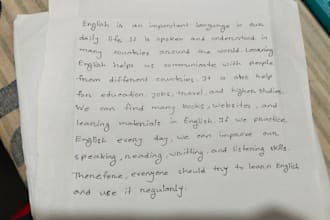 English is an important language in our
daily life. It is spoken and understood in
many countries around the world. Learning
English helps us communicate with people
from different countries. It is also help
for education, jobs, travel, and higher studing.
We can find many books, websites, and
learning materials in English. If we practice
English every day, we can improve our
speaking, reading, writting, and listening skills.
Therefore, everyone should try to learn English
and use it regularly.